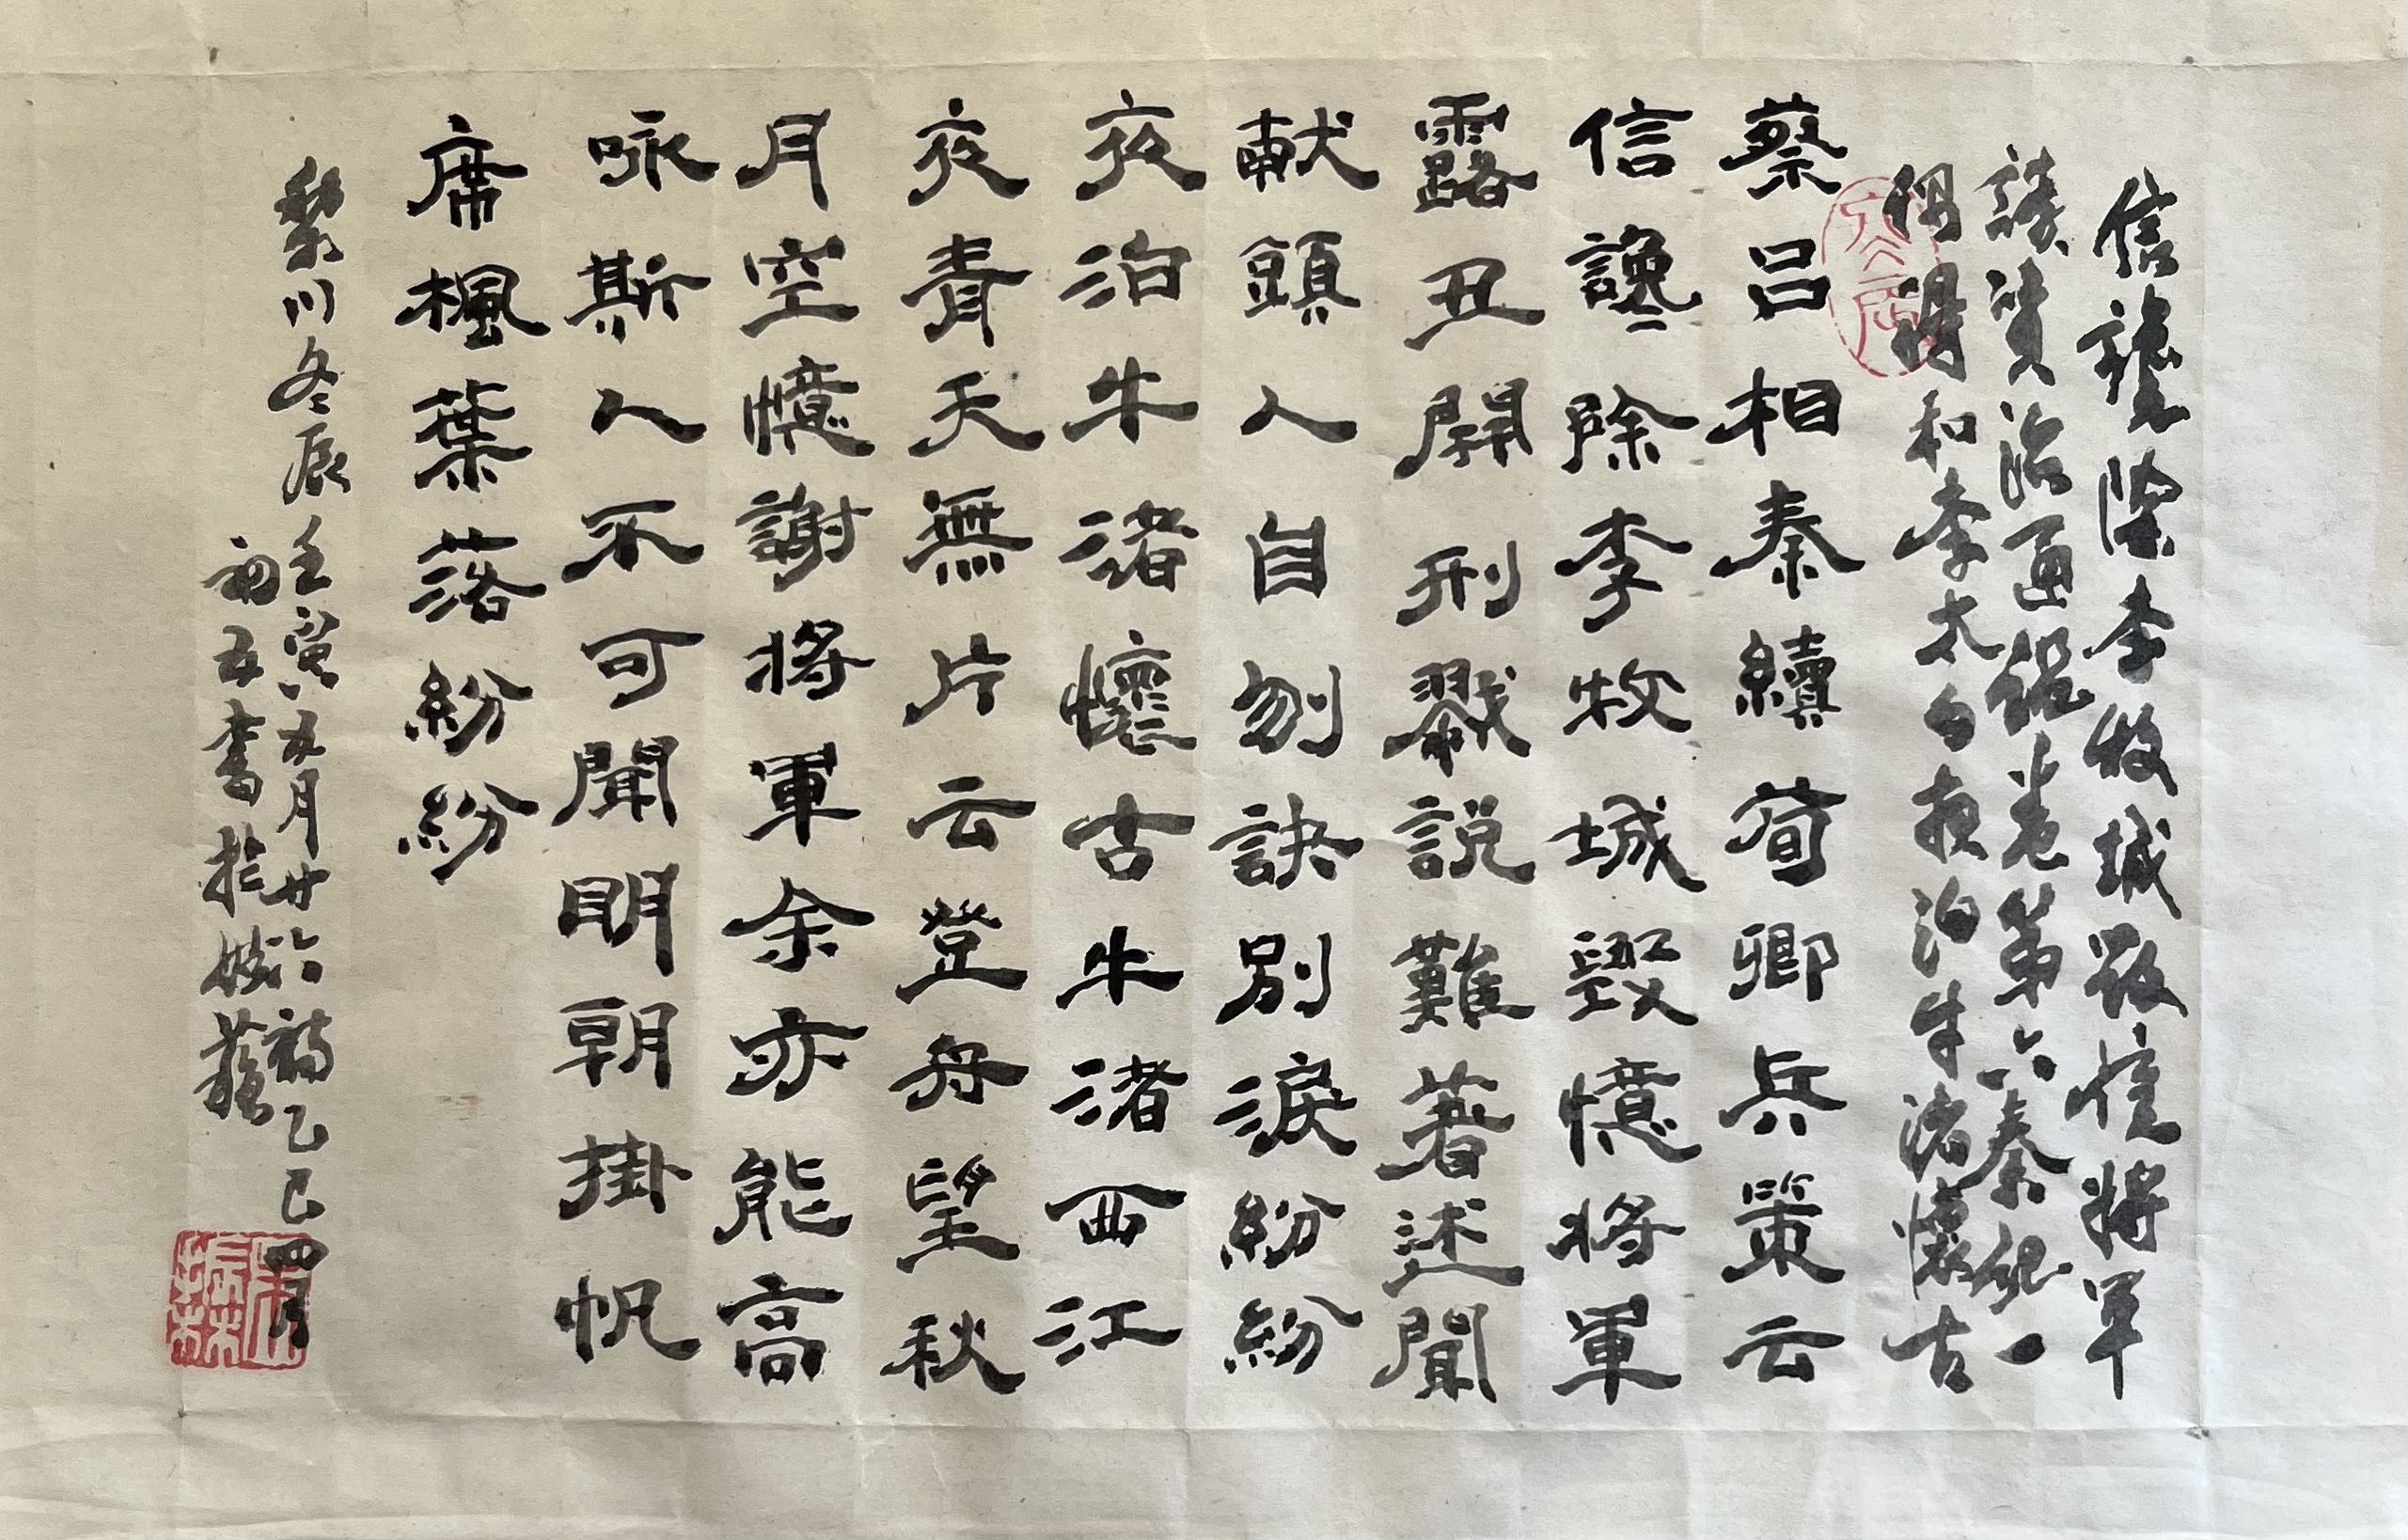 信讒墮李牧城毀憶將軍
讀資治通鑑卷第六秦紀一
偶得和李太白夜泊牛渚懷古
蔡呂相秦續荀卿兵策云
信讒除李牧城毀憶將軍
露丑開刑戮説難著述聞
献頭人自刎訣別淚紛紛
夜泊牛渚懷古牛渚西江
夜青天無片云登舟望秋
月空憶謝將軍余亦能高
咏斯人不可聞明朝掛帆
席楓葉落紛紛
川冬辰壬寅五月廿六詩乙巳四月
初五書於